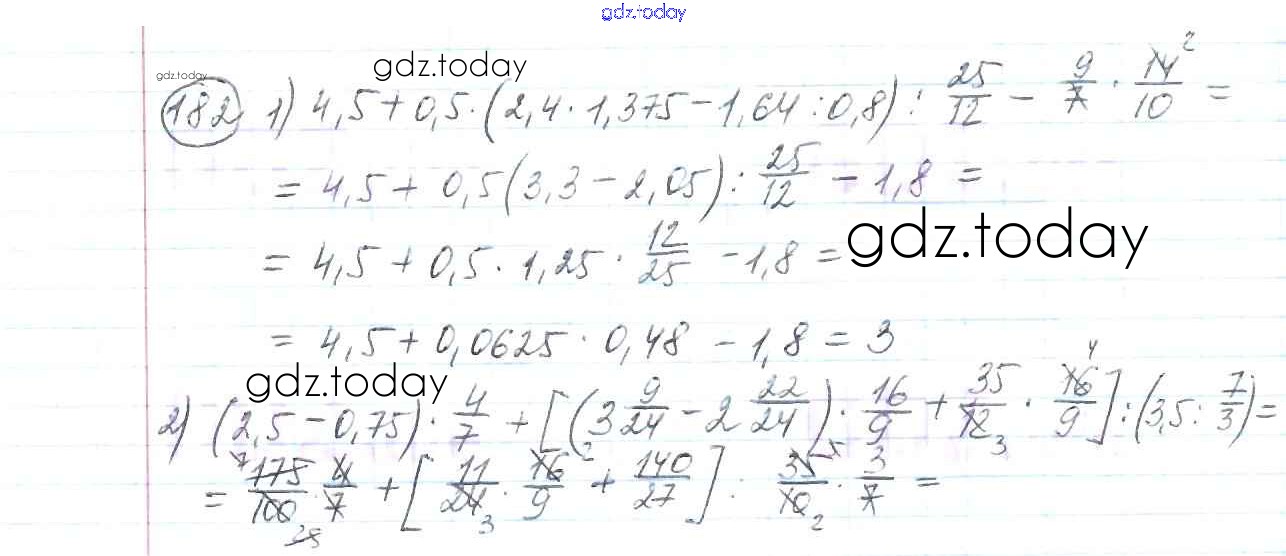 gdz.today
gdz.today
gdz.today
182 1) 4,5+0,5·(2,4·1,375−1,64:0,8): 25/12 − 9/7 · 14/10 = 2
= 4,5+ 0,5(3,3−2,05): 25/12 −1,8 =
gdz.today
= 4,5+0,5·1,25· 12/25 −1,8=
= 4,5+0,0625·0,48 −1,8=3
gdz.today
2) (2,5−0,75)· 4/7 + [(3 9/24 − 2 22/24)· 16/9 + 35/12 3 · 16/9 4]:(3,5: 7/3)=
= 7 175/100 25 · 4/7 + [11/24 3 · 16/9 2 + 140/27] : 35/10 2 5 · 3/7 =